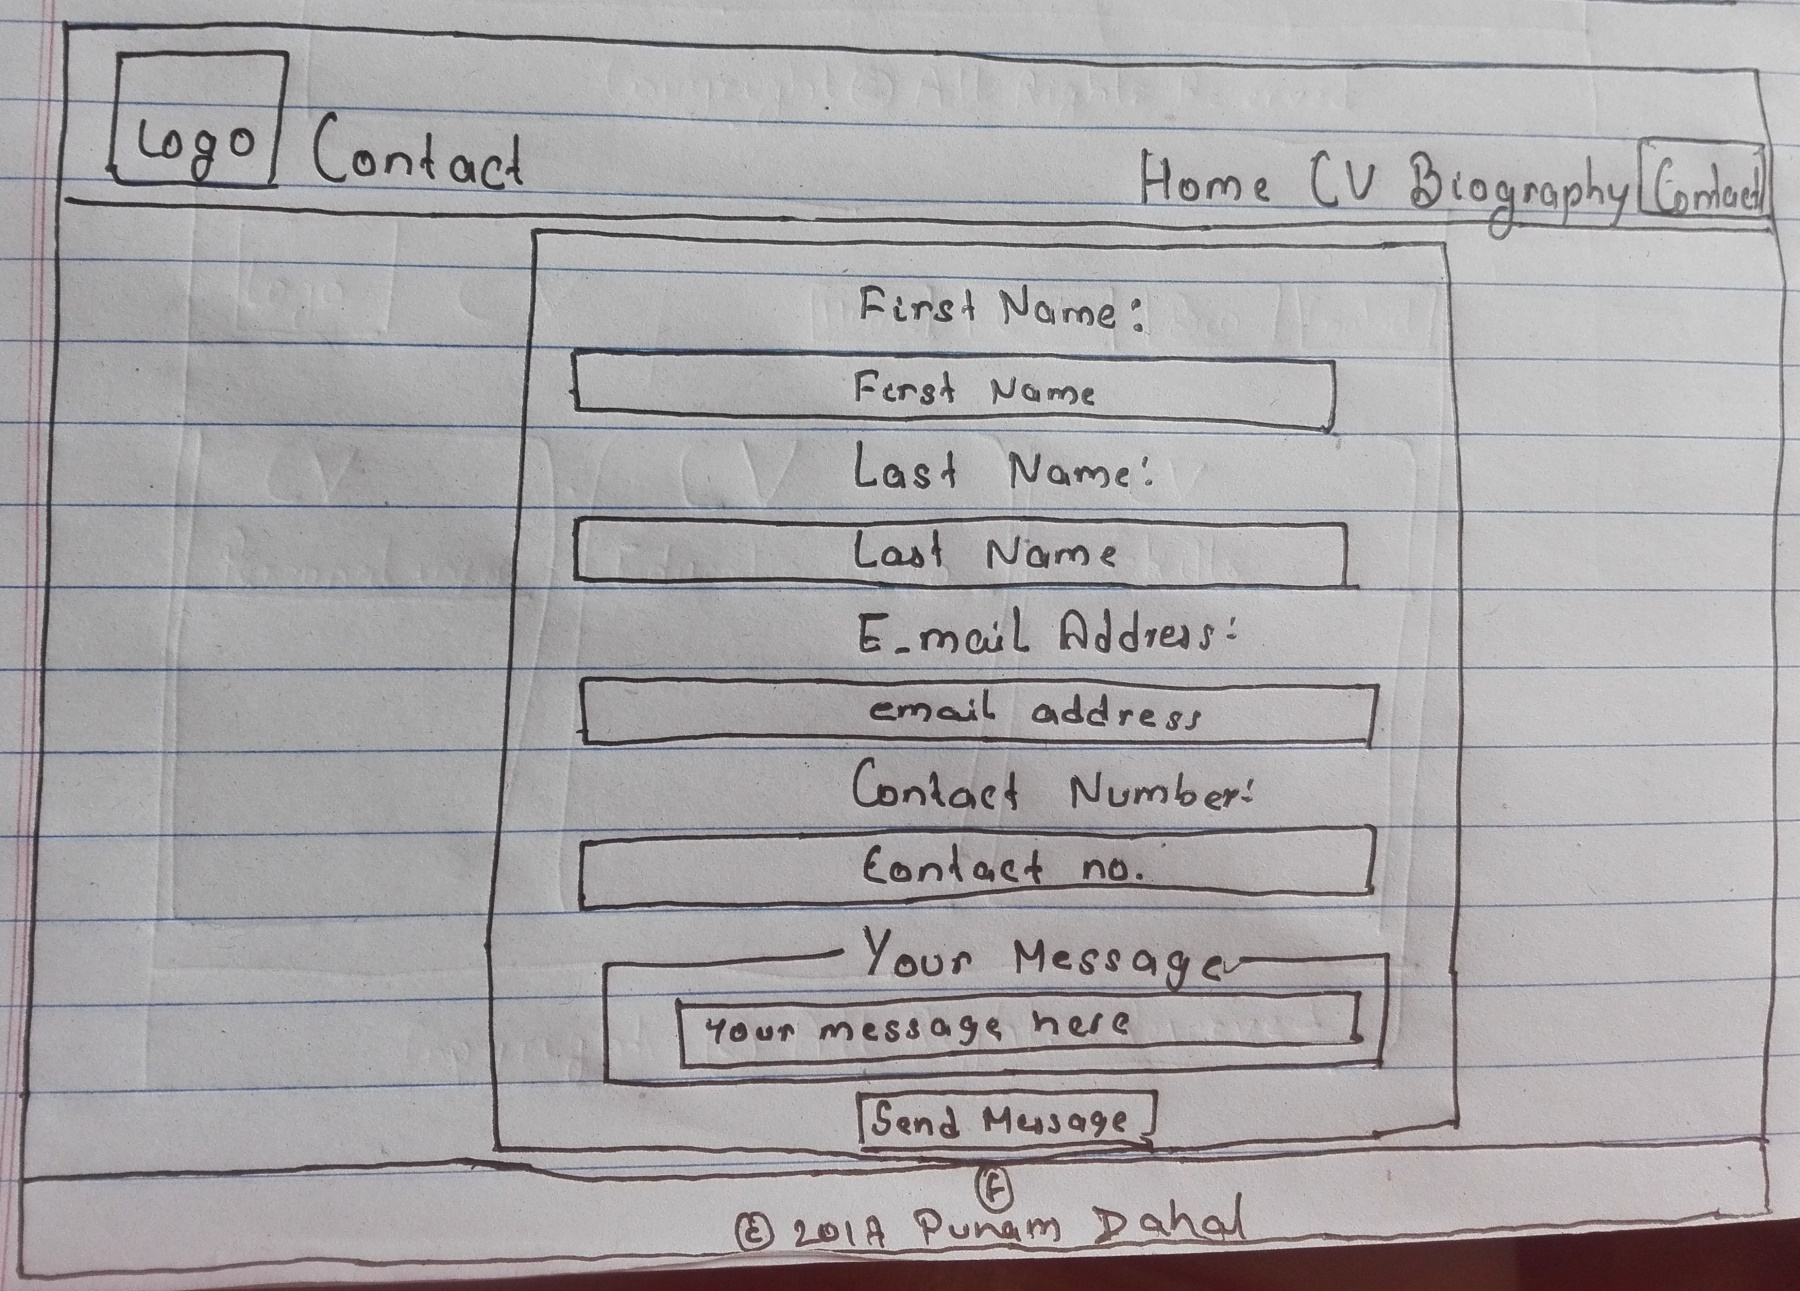 Logo Contact
Home CV Biography Contact
First Name:
First Name
Last Name:
Last Name
E-mail Address:
email address
Contact Number:
Contact no.
Your Message
Your message here
Send Message
F
© Punam Dahal